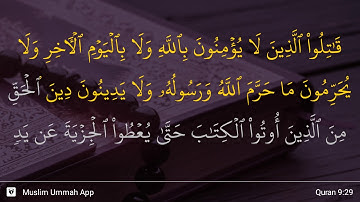 قَٰتِلُوا۟ ٱلَّذِينَ لَا يُؤْمِنُونَ بِٱللَّهِ وَلَا بِٱلْيَوْمِ ٱلْءَاخِرِ وَلَا
يُحَرِّمُونَ مَا حَرَّمَ ٱللَّهُ وَرَسُولُهُۥ وَلَا يَدِينُونَ دِينَ ٱلْحَقِّ
مِنَ ٱلَّذِينَ أُوتُوا۟ ٱلْكِتَٰبَ حَتَّىٰ يُعْطُوا۟ ٱلْجِزْيَةَ عَن يَدٍ
Muslim Ummah App Quran 9:29